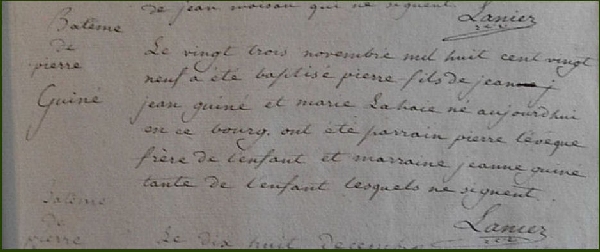 de jean moison qui ne signent.
Lanier
Batême
de
pierre
Guiné
Le vingt trois novembre mil huit cent vingt
neuf a été baptisé pierre fils de jean
jean guiné et marie Lahaie né aujourdhui
en ce bourg. ont été parrain pierre lévêque
frère de l'enfant et marraine jeanne guine
tante de l'enfant lesquels ne signent.
Lanier
Batême
de
pierre
Le dix huit decembre